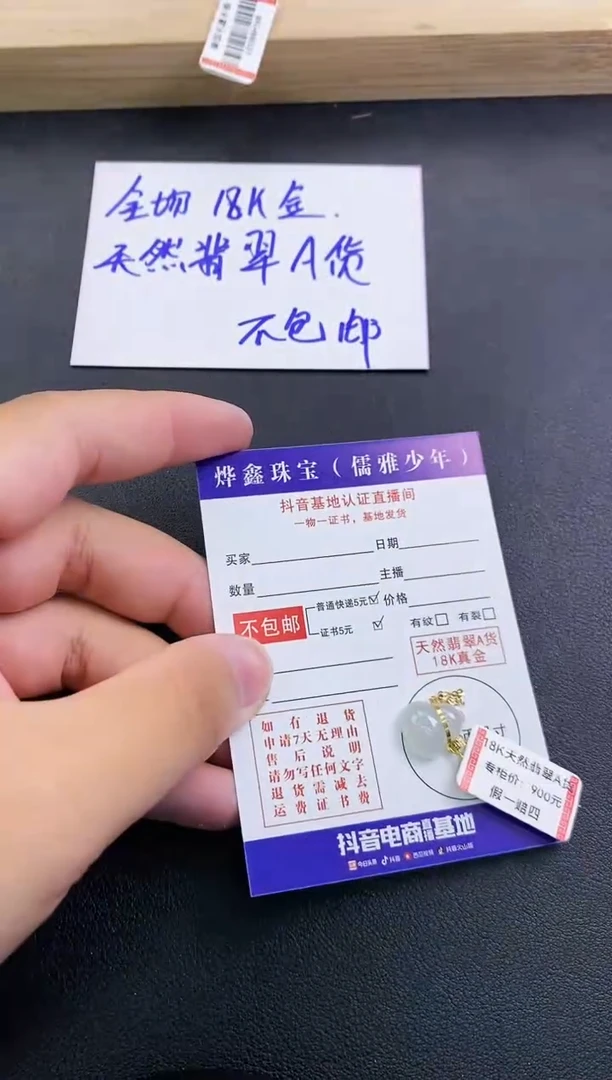 全场 18K金.
天然翡翠A货
不包邮
烨鑫珠宝（儒雅少年）
抖音基地认证直播间
一物一证书，基地发货
买家
日期
数量
主播
不包邮
普通快递5元☑
证书5元 ☑
价格
有纹□ 有裂□
天然翡翠A货
18K真金
如有退货
申请7天无理由
售后说明
请勿写任何文字
退货需减去
运费证书费
寸
18K天然翡翠A货
专柜价：900元
假一赔四
抖音电商直播基地
今日头条 抖音 西瓜视频 抖音火山版